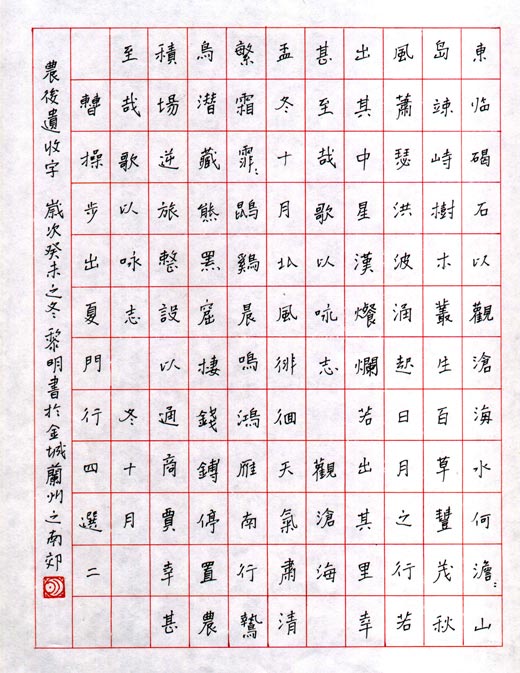 東临碣石以觀滄海水何澹:山
島竦峙樹木叢生百草豐茂秋
風蕭瑟洪波涌起日月之行若
出其中星漢燦爛若出其里幸
甚至哉歌以咏志 觀滄海
孟冬十月北風徘徊天氣肅清
繁霜霏:鵾鷄晨鳴鴻雁南行鷙
鳥潛藏熊羆窟棲錢鎛停置農
積場逆旅整設以通商賈幸甚
至哉歌以咏志 冬十月
曹操步出夏門行四選二
農後遺收字 歲次癸未之冬黎明書於金城蘭州之南郊